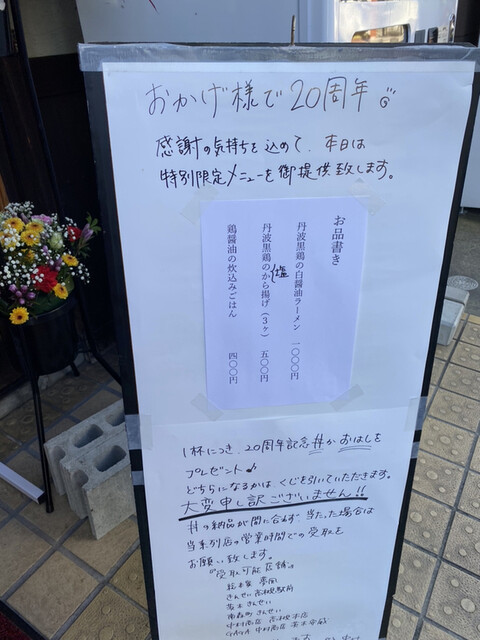 おかげ様で20周年
感謝の気持ちを込めて、本日は
特別限定メニューを御提供致します。
お品書き
丹波黒鶏の白醤油ラーメン 一〇〇〇円
丹波黒鶏のから揚げ(3ヶ) 五〇〇円
塩
鶏醤油の炊込みごはん 四〇〇円
1杯につき、20周年記念丼かおはしを
プレゼント♪
どちらになるかはくじを引いていただきます。
大変申し訳ございません!!
丼の納品が間に合わず、当たった場合は
当系列店の営業時間での受取を
お願い致します。
"受取可能店舗"
きんせい 高槻駅前
茨木きんせい
中村商店 高槻本店